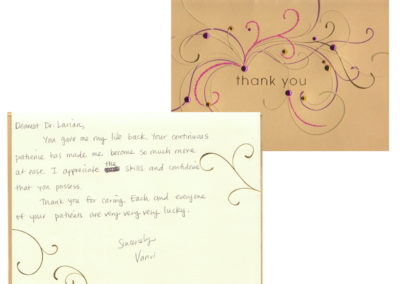 thank you
Dearest Dr. Larian,
You gave me my life back. Your continuous
patience has made me become so much more
at ease. I appreciate the skills and confidence
that you possess.
Thank you for caring. Each and everyone
of your patients are very very very lucky.
Sincerely,
Vanri